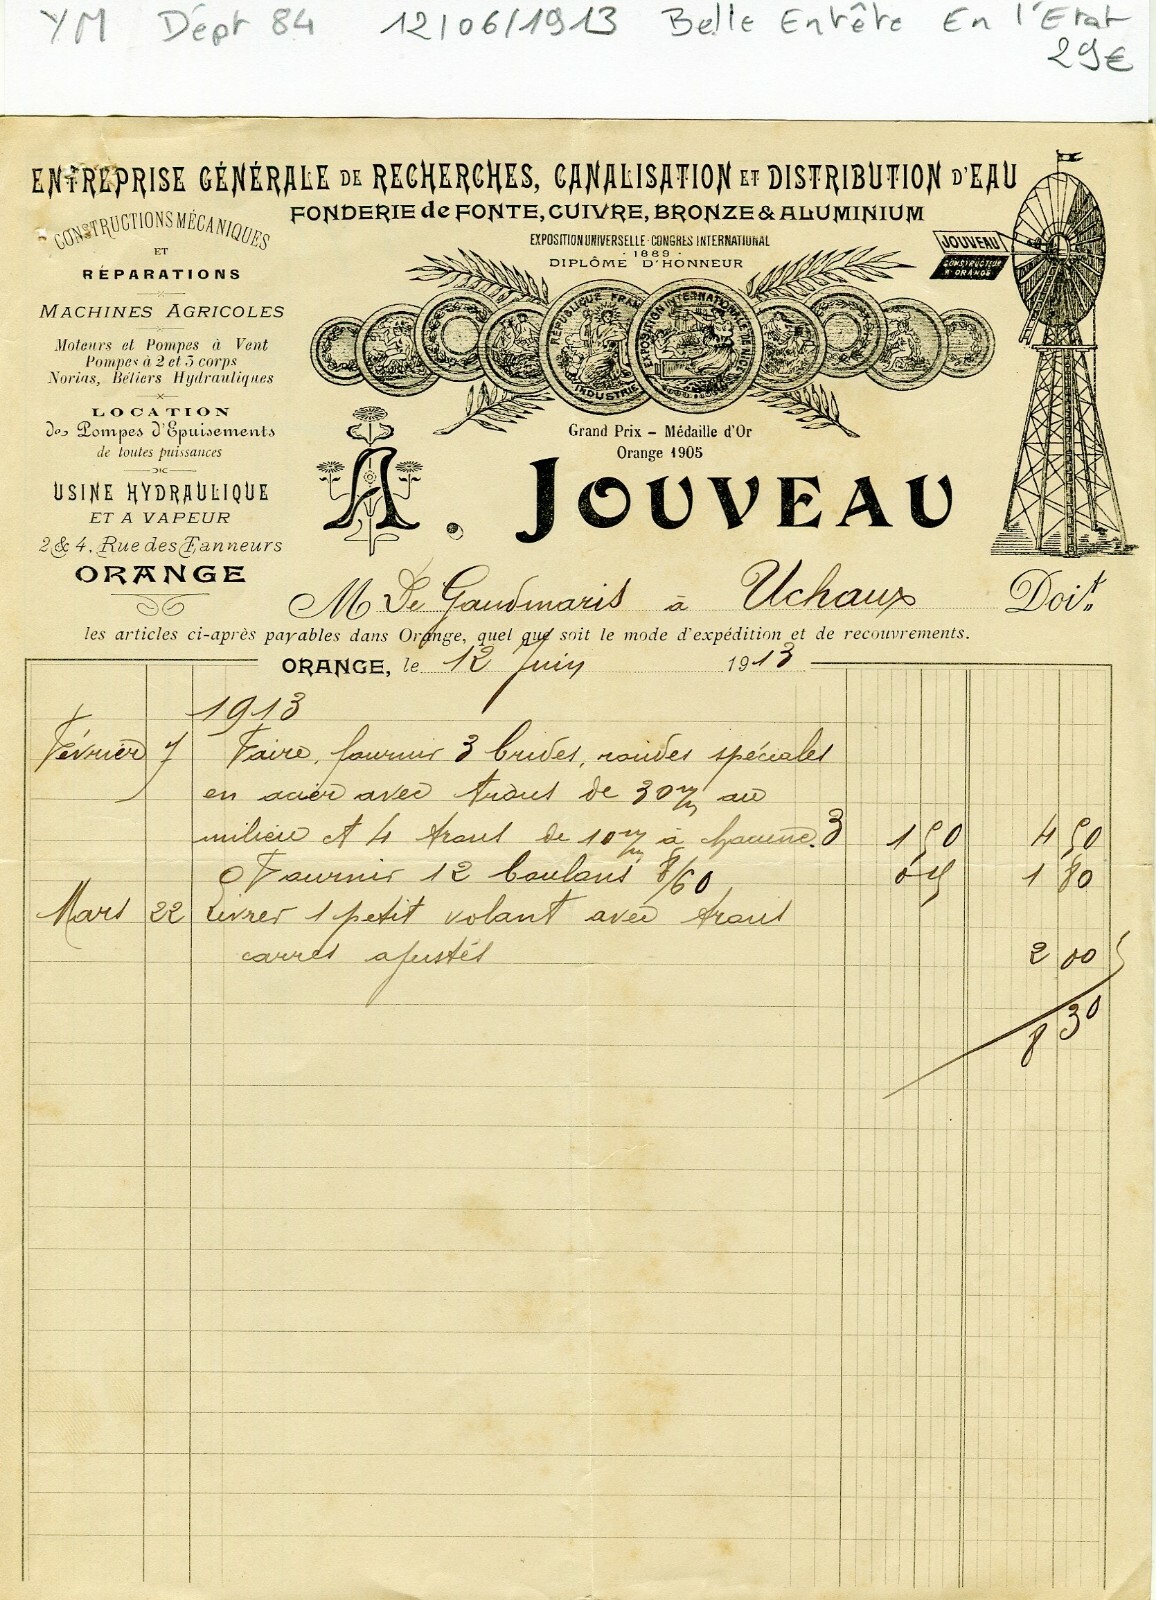 YM Dépt 84 12/06/1913 Belle Entête En l'Etat
29€
ENTREPRISE GÉNÉRALE DE RECHERCHES, CANALISATION ET DISTRIBUTION D'EAU
FONDERIE de FONTE, CUIVRE, BRONZE & ALUMINIUM
CONSTRUCTIONS MÉCANIQUES
ET
RÉPARATIONS
MACHINES AGRICOLES
Moteurs et Pompes à Vent
Pompes à 2 et 3 corps
Norias, Béliers Hydrauliques
LOCATION
de Pompes d'Epuisements
de toutes puissances
USINE HYDRAULIQUE
ET A VAPEUR
2 & 4, Rue des Tanneurs
ORANGE
EXPOSITION UNIVERSELLE - CONGRES INTERNATIONAL
- 1889 -
DIPLÔME D'HONNEUR
RÉPUBLIQUE FRAN
INDUSTRIE
EXPOSITION INTERNATIONALE DE NICE
Grand Prix - Médaille d'Or
Orange 1905
JOUVEAU
CONSTRUCTEUR
A ORANGE
A. JOUVEAU
M De Gaudmaris à Uchaux Doit
les articles ci-après payables dans Orange, quel que soit le mode d'expédition et de recouvrements.
ORANGE, le 12 Juin 1913
1913
Février 7 Faire, fournir 3 brides, rondes spéciales
en acier avec trous de 30 m/m au
milieu et 4 trous de 10 m/m à chacune. 3 1 50 4 50
Fournir 12 boulons 8/60 0 15 1 80
Mars 22 Livrer 1 petit volant avec trous
carrés ajustés 2 00
8 30